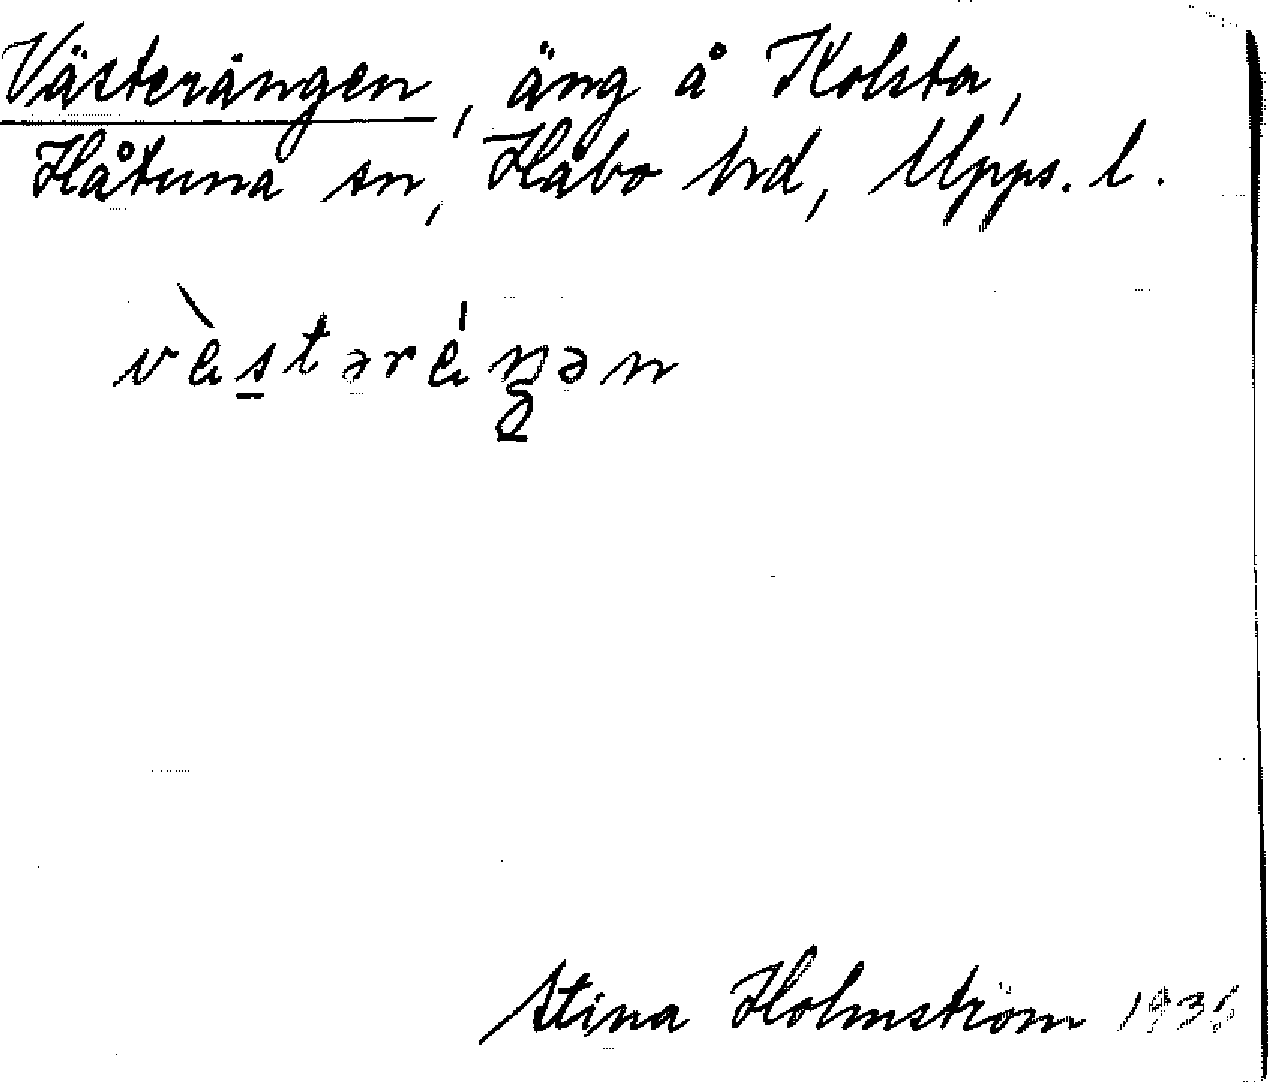 Västerängen, äng å Kolsta,
Håtuna sn, Håbo hrd, Upps. l.
vèstəréŋən
Stina Holmström 1936